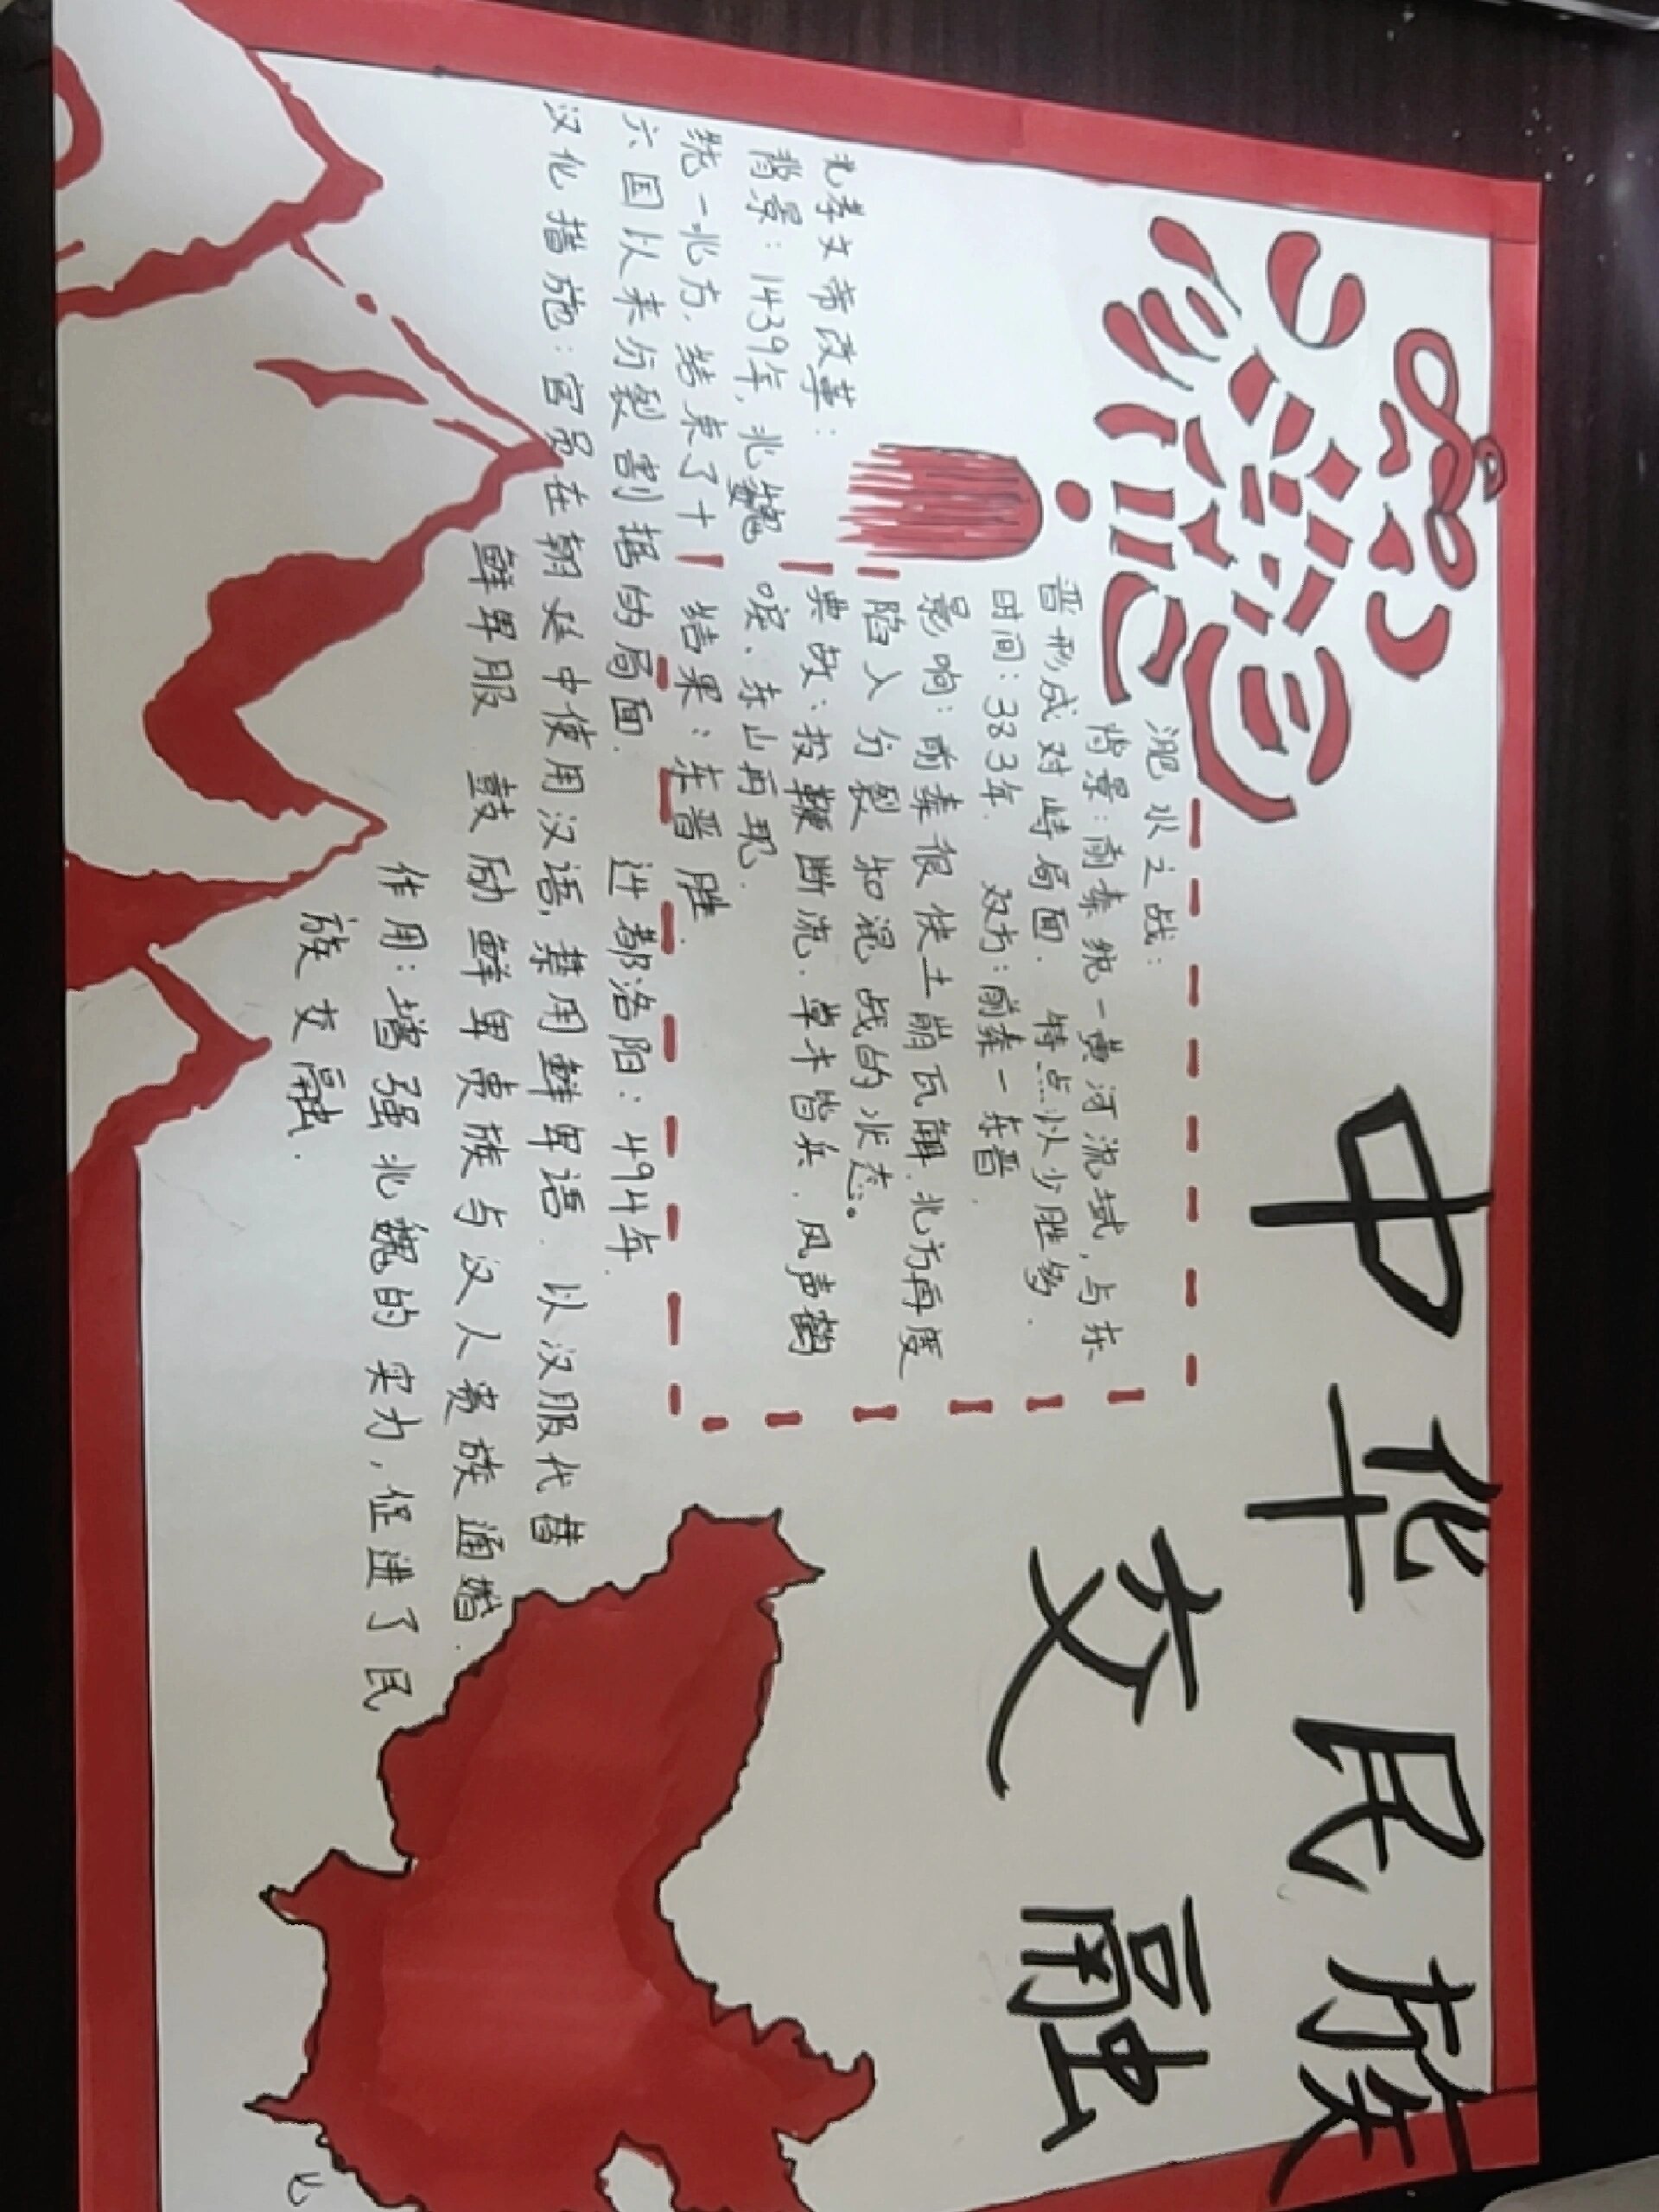 中华民族
交融
淝水之战：
背景：前秦统一黄河流域，与东
晋形成对峙局面. 特点以少胜多.
时间：383年. 双方：前秦－东晋.
影响：前秦很快土崩瓦解.北方再度
陷入分裂和混战的状态。
典故：投鞭断流.草木皆兵.风声鹤
唳、东山再现.
结果：东晋胜.
北孝文帝改革：
背景：1439年,北魏
统一北方.结束了十
六国以来分裂割据的局面. 迁都洛阳：494年.
汉化措施：官员在朝廷中使用汉语,禁用鲜卑语.以汉服代替
鲜卑服 鼓励鲜卑贵族与汉人贵族通婚.
作用：增强北魏的实力,促进了民
族交融.